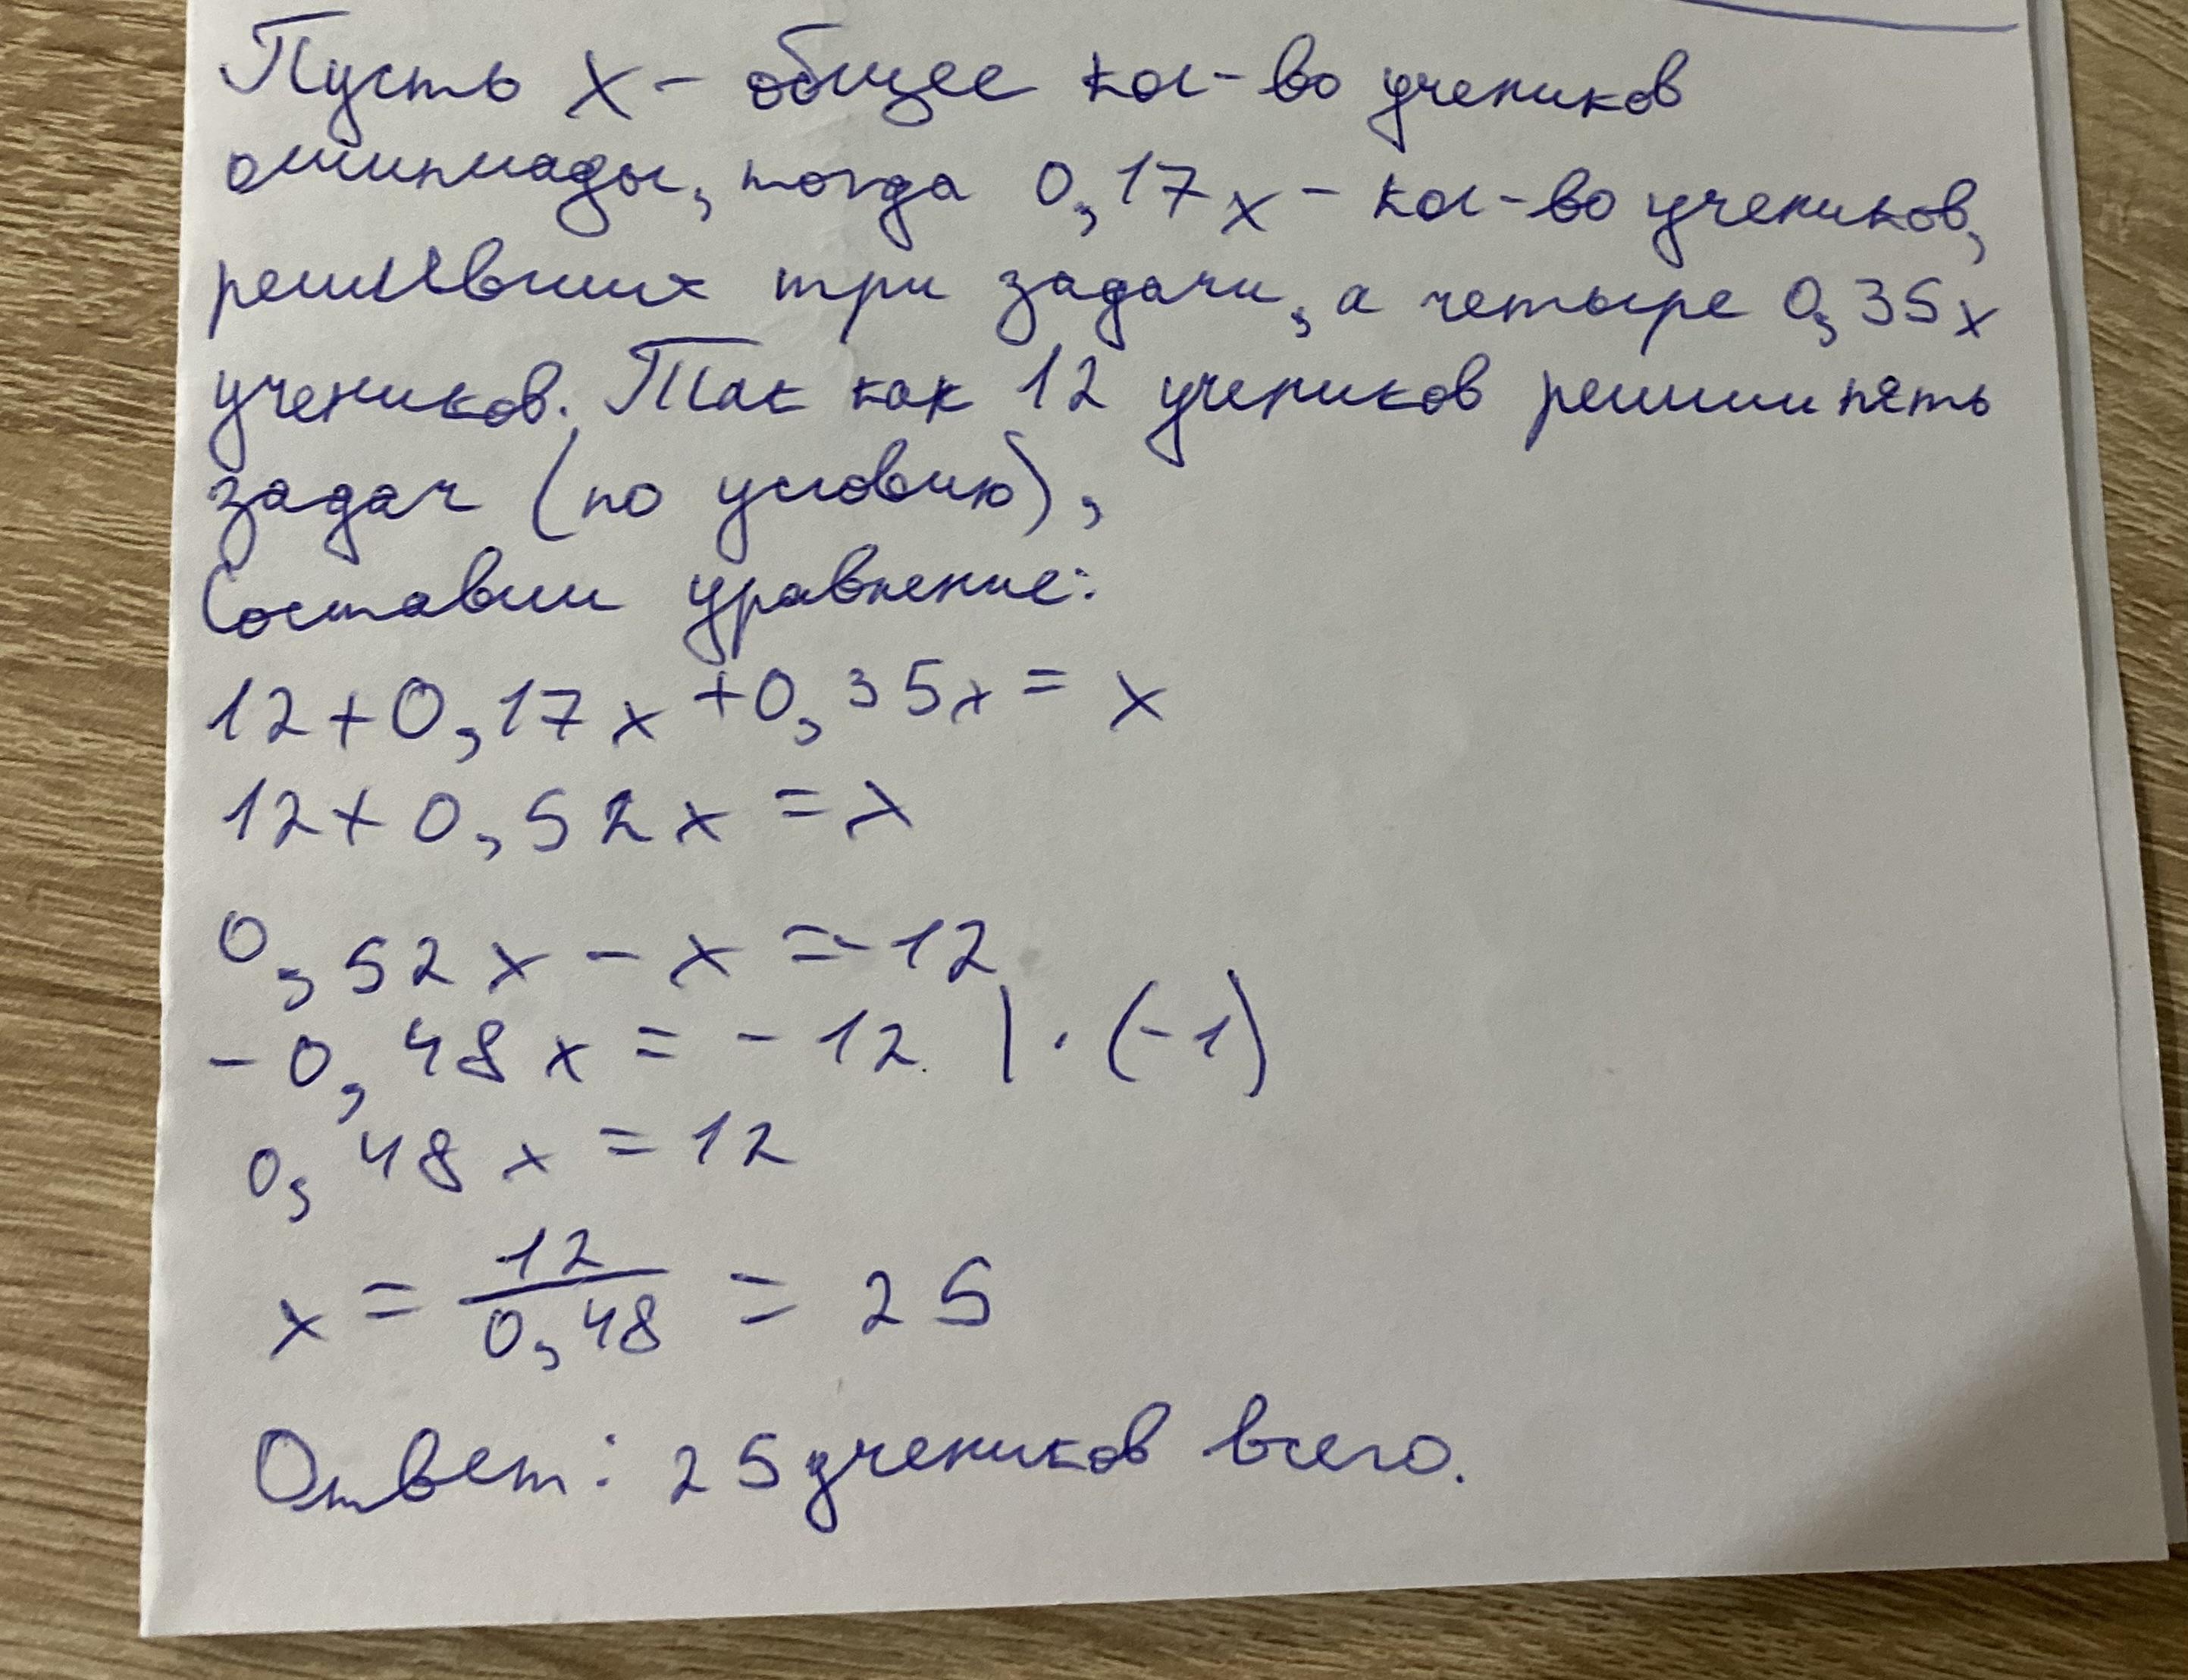 Пусть x - общее кол-во учеников
олимпиады, тогда 0,17x - кол-во учеников,
решивших три задачи, а четыре 0,35x
учеников. Так как 12 учеников решили пять
задач (по условию),
Составим уравнение:
12+0,17x+0,35x=x
12+0,52x=x
0,52x-x=-12
-0,48x=-12 |·(-1)
0,48x=12
x=12/0,48=25
Ответ: 25 учеников всего.